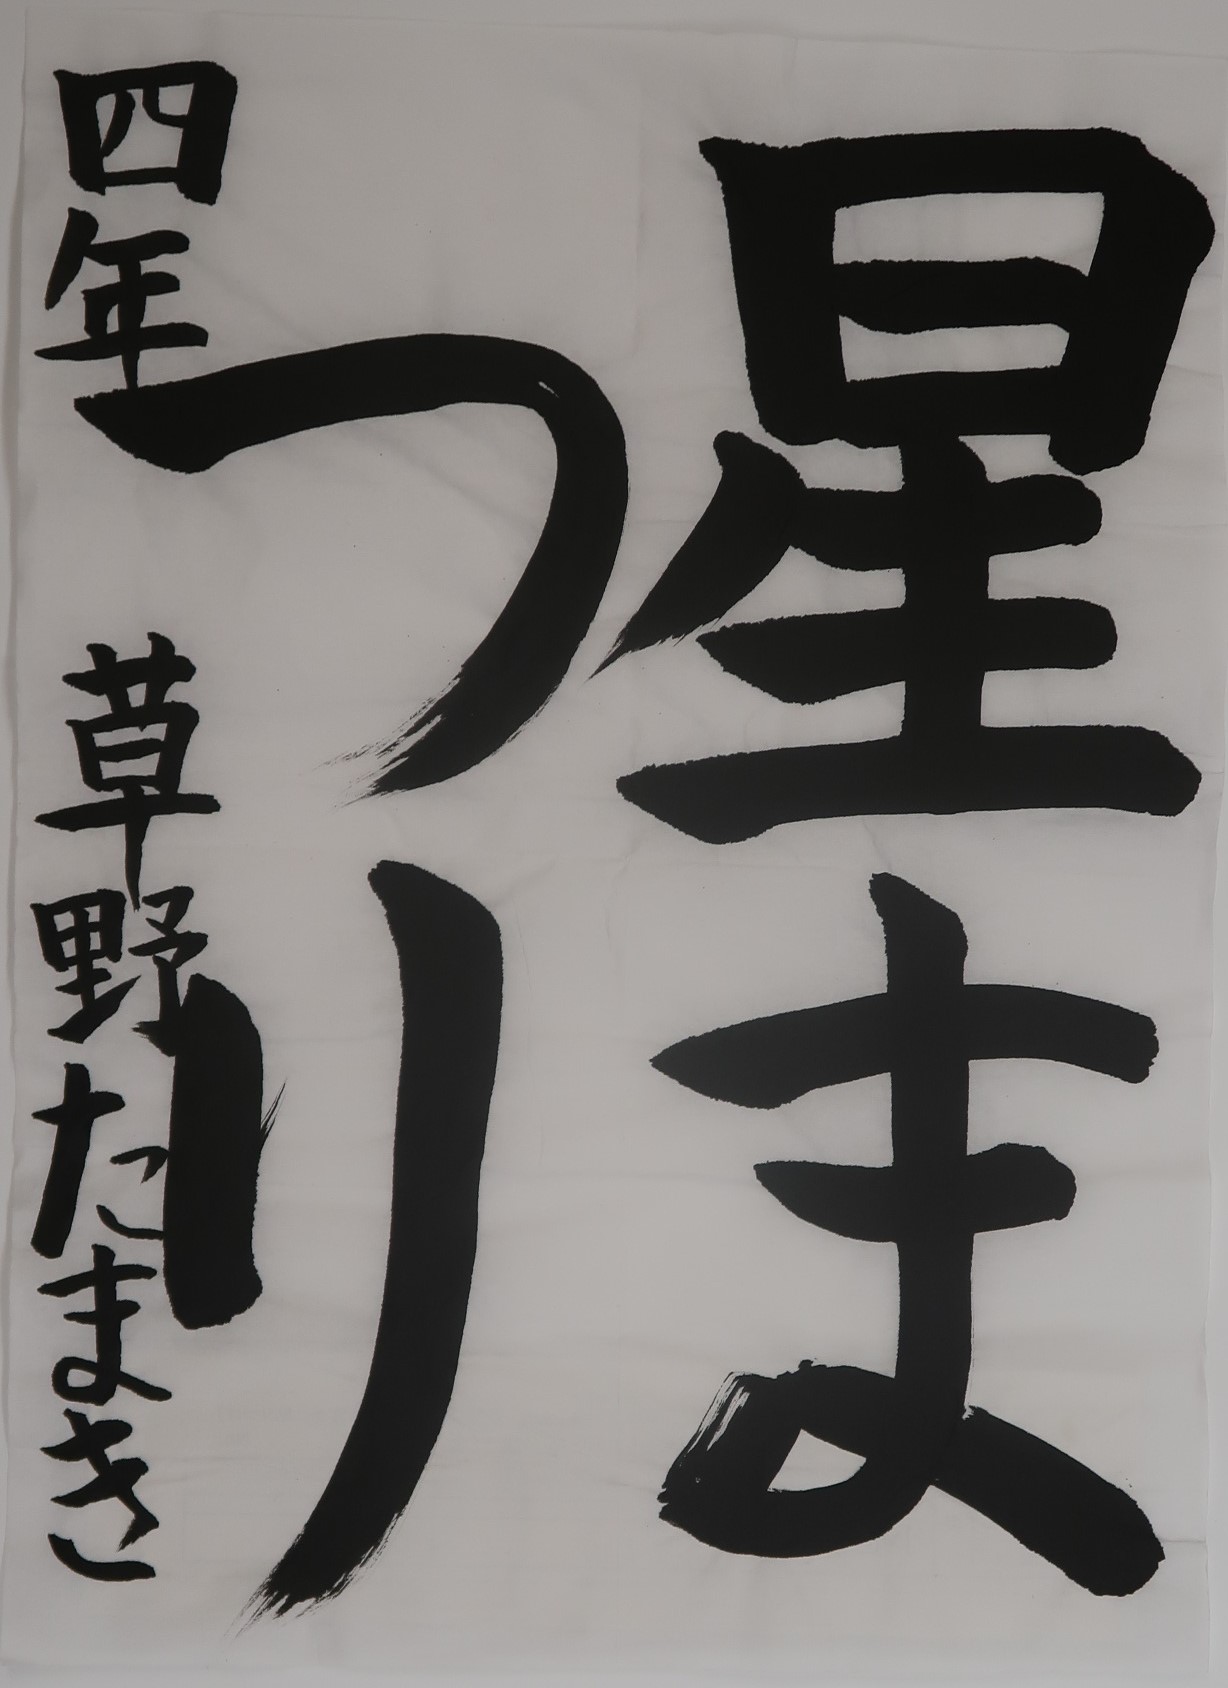 星ま
つり
四年 草野たまき